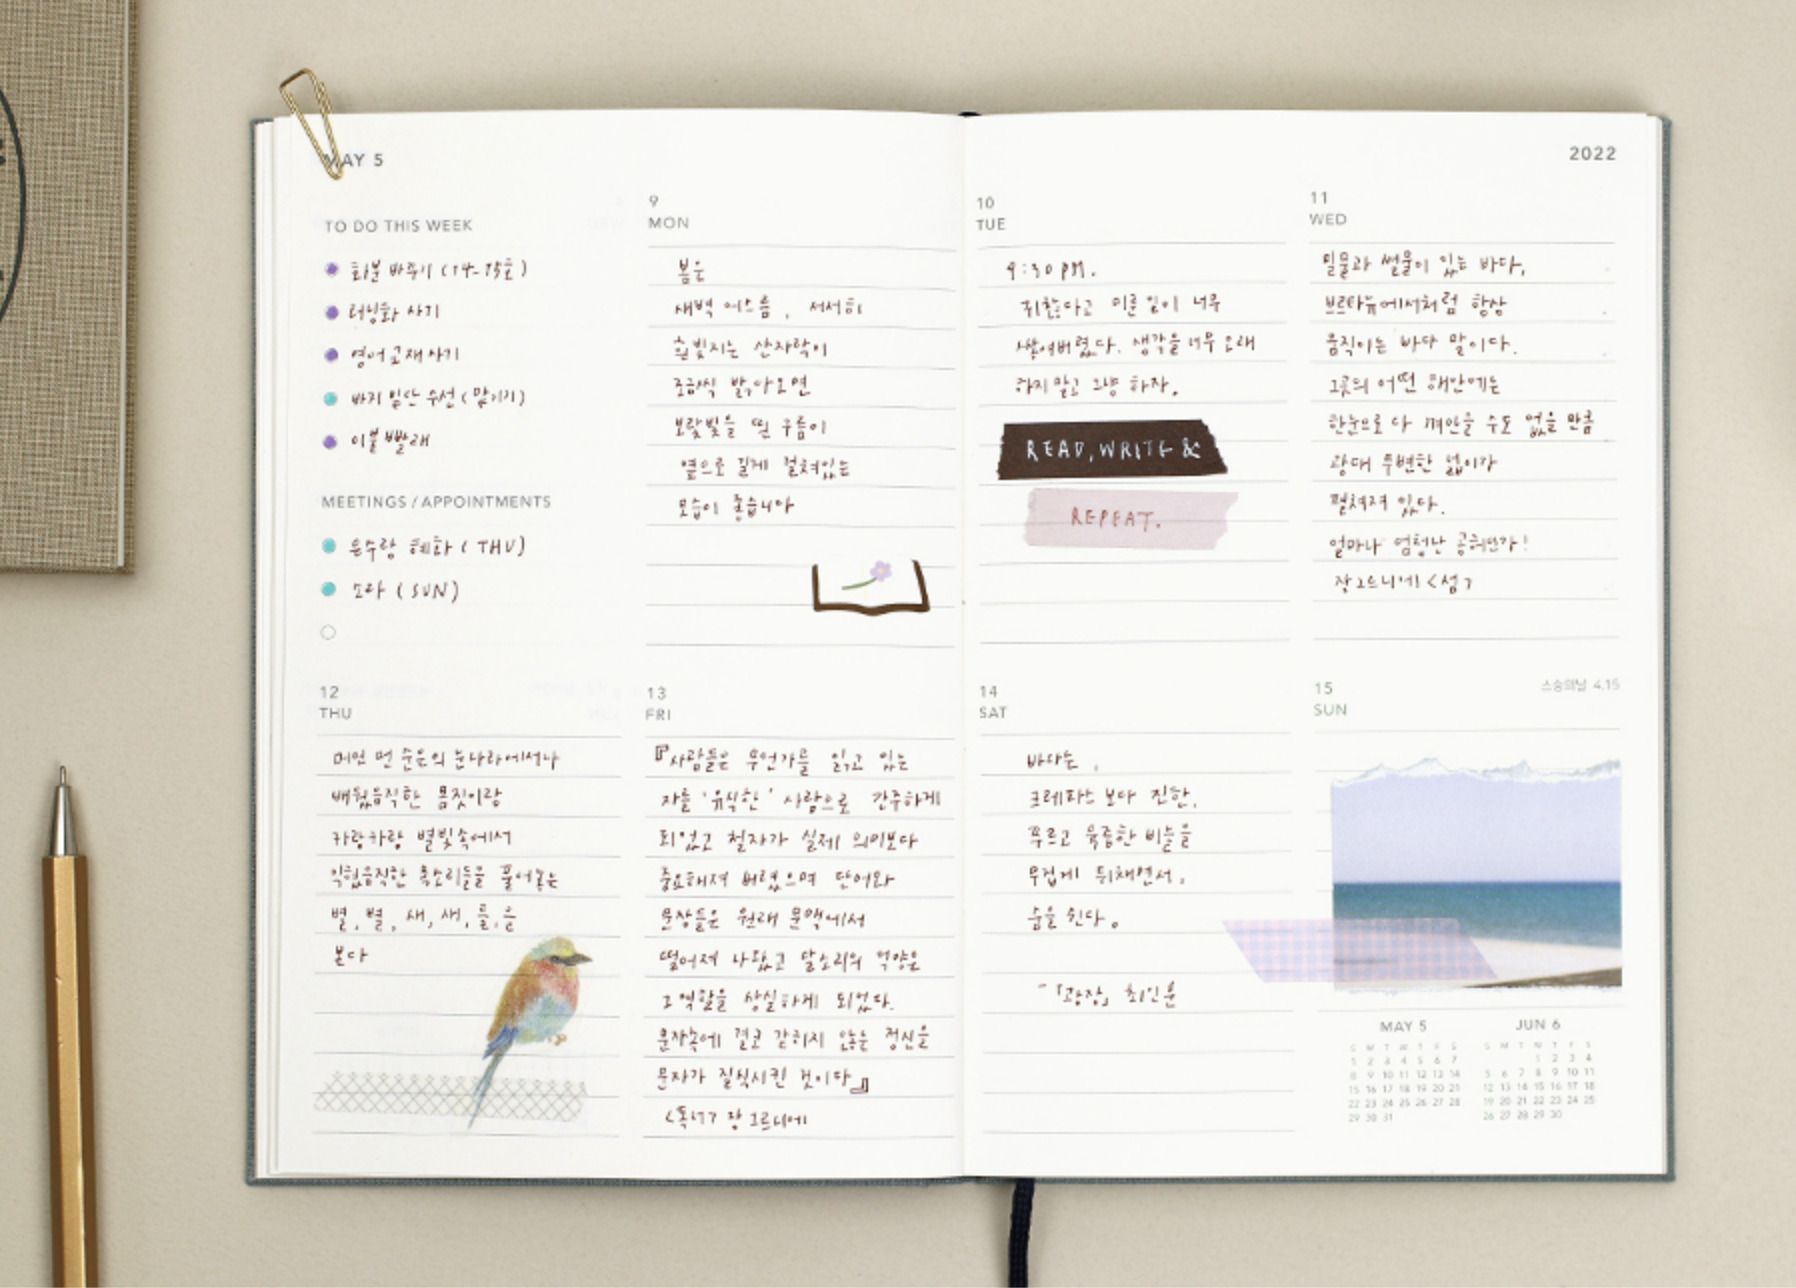 MAY 5
2022
TO DO THIS WEEK
화분 바꾸기 (14-15호)
러닝화 사기
영어교재 사기
바지 밑단 수선 (맡기기)
이불빨래
MEETINGS / APPOINTMENTS
은수랑 혜화 (THU)
소라 (SUN)
9
MON
봄은
새벽 어스름, 서서히
흰빛지는 산자락이
조금씩 밝아오면
보랏빛을 띤 구름이
옆으로 길게 걸쳐있는
모습이 좋습니다
10
TUE
9:30 PM.
귀찮다고 미룬 일이 너무
쌓여버렸다. 생각을 너무 오래
하지 말고 그냥 하자.
READ, WRITE &
REPEAT.
11
WED
밀물과 썰물이 있는 바다,
브르타뉴에서처럼 항상
움직이는 바다 말이다.
그곳의 어떤 해안에는
한눈으로 다 껴안을 수도 없을 만큼
광대 무변한 넓이가
펼쳐져 있다.
얼마나 엄청난 공허인가!
장 그르니에 <섬>
12
THU
머언 먼 순은의 눈나라에서나
배웠음직한 몸짓이랑
카랑카랑 별빛속에서
익혔음직한 목소리들을 풀어놓는
별, 별, 새, 새, 들, 을
본다
13
FRI
『사람들은 무언가를 읽고 있는
자를 '유식한' 사람으로 간주하게
되었고 철자가 실제 의미보다
중요해져 버렸으며 단어와
문장들은 원래 문맥에서
떨어져 나왔고 말소리의 억양은
그 역할을 상실하게 되었다.
문자속에 결코 갇히지 않는 정신을
문자가 질식시킨 것이다』
<독서> 장 그르니에
14
SAT
바다는,
크레파스 보다 진한,
푸르고 육중한 비늘을
무겁게 뒤채면서,
숨을 쉰다.
-「광장」 최인훈
15
SUN
스승의날 4.15
MAY 5
S M T W T F S
1 2 3 4 5 6 7
8 9 10 11 12 13 14
15 16 17 18 19 20 21
22 23 24 25 26 27 28
29 30 31
JUN 6
S M T W T F S
1 2 3 4
5 6 7 8 9 10 11
12 13 14 15 16 17 18
19 20 21 22 23 24 25
26 27 28 29 30